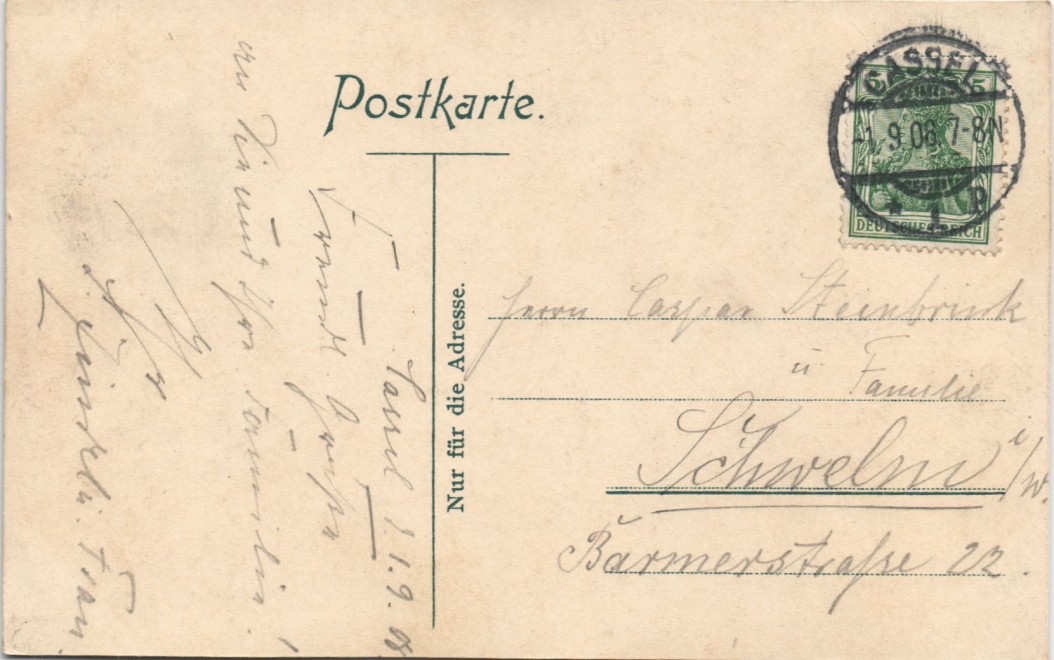 Postkarte.
CASSEL
-1.9.08.7-8N
* 1 P
5 5
DEUTSCHES REICH
Nur für die Adresse.
Herrn Caspar Steinbrink
u Familie
Schwelm i/W.
Barmerstraße 22.
Cassel d. 1.9.08
Freundl. Grüße
an Sie und Ihre Familie!
Ihr
Frau.